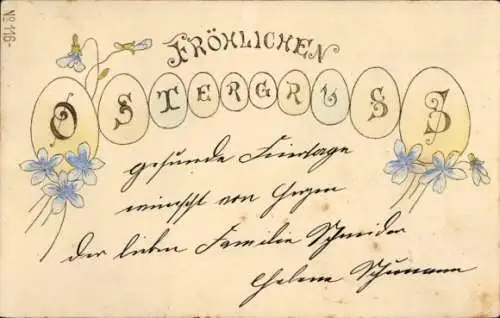 No 116-
FRÖHLICHEN
OSTERGRUSS
gesunde Feiertage
wünscht von Herzen
der lieben Familie Schneider
Helene Schumann